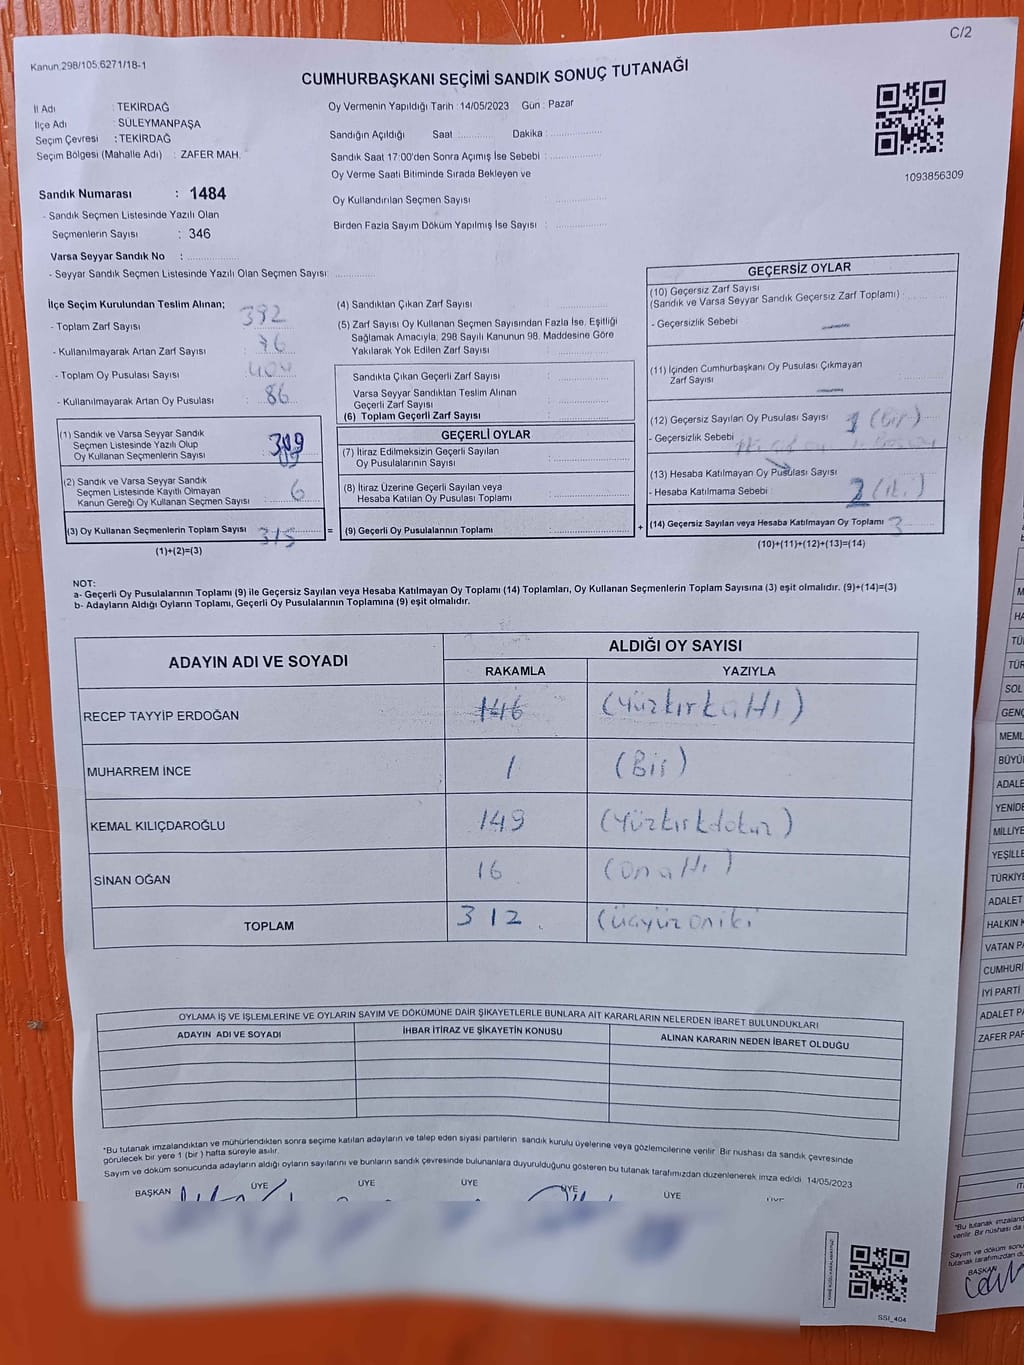 C/2
Kanun 298/105,6271/18-1
CUMHURBAŞKANI SEÇİMİ SANDIK SONUÇ TUTANAĞI
İl Adı : TEKİRDAĞ
İlçe Adı : SÜLEYMANPAŞA
Seçim Çevresi : TEKİRDAĞ
Seçim Bölgesi (Mahalle Adı) : ZAFER MAH.
Sandık Numarası : 1484
- Sandık Seçmen Listesinde Yazılı Olan
Seçmenlerin Sayısı : 346
Varsa Seyyar Sandık No :
- Seyyar Sandık Seçmen Listesinde Yazılı Olan Seçmen Sayısı
Oy Vermenin Yapıldığı Tarih : 14/05/2023 Gün : Pazar
Sandığın Açıldığı Saat : Dakika :
Sandık Saat 17:00'den Sonra Açımış İse Sebebi :
Oy Verme Saati Bitiminde Sırada Bekleyen ve
Oy Kullandırılan Seçmen Sayısı :
Birden Fazla Sayım Döküm Yapılmış İse Sayısı :
1093856309
İlçe Seçim Kurulundan Teslim Alınan;
- Toplam Zarf Sayısı : 392
- Kullanılmayarak Artan Zarf Sayısı : 76
- Toplam Oy Pusulası Sayısı :
- Kullanılmayarak Artan Oy Pusulası : 86
(1) Sandık ve Varsa Seyyar Sandık
Seçmen Listesinde Yazılı Olup
Oy Kullanan Seçmenlerin Sayısı : 309
(2) Sandık ve Varsa Seyyar Sandık
Seçmen Listesinde Kayıtlı Olmayan
Kanun Gereği Oy Kullanan Seçmen Sayısı : 6
(3) Oy Kullanan Seçmenlerin Toplam Sayısı 315
(1)+(2)=(3)
(4) Sandıktan Çıkan Zarf Sayısı
(5) Zarf Sayısı Oy Kullanan Seçmen Sayısından Fazla İse, Eşitliği
Sağlamak Amacıyla, 298 Sayılı Kanunun 98. Maddesine Göre
Yakılarak Yok Edilen Zarf Sayısı
Sandıkta Çıkan Geçerli Zarf Sayısı
Varsa Seyyar Sandıktan Teslim Alınan
Geçerli Zarf Sayısı
(6) Toplam Geçerli Zarf Sayısı
GEÇERLİ OYLAR
(7) İtiraz Edilmeksizin Geçerli Sayılan
Oy Pusulalarının Sayısı
(8) İtiraz Üzerine Geçerli Sayılan veya
Hesaba Katılan Oy Pusulası Toplamı
= (9) Geçerli Oy Pusulalarının Toplamı
GEÇERSİZ OYLAR
(10) Geçersiz Zarf Sayısı
(Sandık ve Varsa Seyyar Sandık Geçersiz Zarf Toplamı) :
- Geçersizlik Sebebi —
(11) İçinden Cumhurbaşkanı Oy Pusulası Çıkmayan
Zarf Sayısı —
(12) Geçersiz Sayılan Oy Pusulası Sayısı 1 (Bir)
- Geçersizlik Sebebi
(13) Hesaba Katılmayan Oy Pusulası Sayısı
- Hesaba Katılmama Sebebi 2 (iki)
+ (14) Geçersiz Sayılan veya Hesaba Katılmayan Oy Toplamı 3
(10)+(11)+(12)+(13)=(14)
NOT:
a- Geçerli Oy Pusulalarının Toplamı (9) ile Geçersiz Sayılan veya Hesaba Katılmayan Oy Toplamı (14) Toplamları, Oy Kullanan Seçmenlerin Toplam Sayısına (3) eşit olmalıdır. (9)+(14)=(3)
b- Adayların Aldığı Oyların Toplamı, Geçerli Oy Pusulalarının Toplamına (9) eşit olmalıdır.
ADAYIN ADI VE SOYADI ALDIĞI OY SAYISI
RAKAMLA YAZIYLA
RECEP TAYYİP ERDOĞAN 146 (Yüzkırkaltı)
MUHARREM İNCE 1 (Bir)
KEMAL KILIÇDAROĞLU 149 (Yüzkırkdokuz)
SİNAN OĞAN 16 (onaltı)
TOPLAM 312 (üçyüzoniki
OYLAMA İŞ VE İŞLEMLERİNE VE OYLARIN SAYIM VE DÖKÜMÜNE DAİR ŞİKAYETLERLE BUNLARA AİT KARARLARIN NELERDEN İBARET BULUNDUKLARI
ADAYIN ADI VE SOYADI İHBAR İTİRAZ VE ŞİKAYETİN KONUSU ALINAN KARARIN NEDEN İBARET OLDUĞU
*Bu tutanak imzalandıktan ve mühürlendikten sonra seçime katılan adayların ve talep eden siyasi partilerin sandık kurulu üyelerine veya gözlemcilerine verilir. Bir nüshası da sandık çevresinde
görülecek bir yere 1 (bir) hafta süreyle asılır.
Sayım ve döküm sonucunda adayların aldığı oyların sayılarını ve bunların sandık çevresinde bulunanlara duyurulduğunu gösteren bu tutanak tarafımızdan düzenlenerek imza edildi. 14/05/2023
BAŞKAN ÜYE ÜYE ÜYE ÜYE ÜYE
SSI_404
SOL
GENÇ
MEML
BÜYÜ
ADALE
YENİDE
MİLLİYE
YEŞİLLE
TÜRKİYE
ADALET
HALKIN K
VATAN PA
CUMHURİ
İYİ PARTİ
ADALET PA
ZAFER PAR
*Bu tutanak imzaland
verilir. Bir nüshası da
Sayım ve döküm sonu
tutanak tarafımızdan dü
BAŞKAN